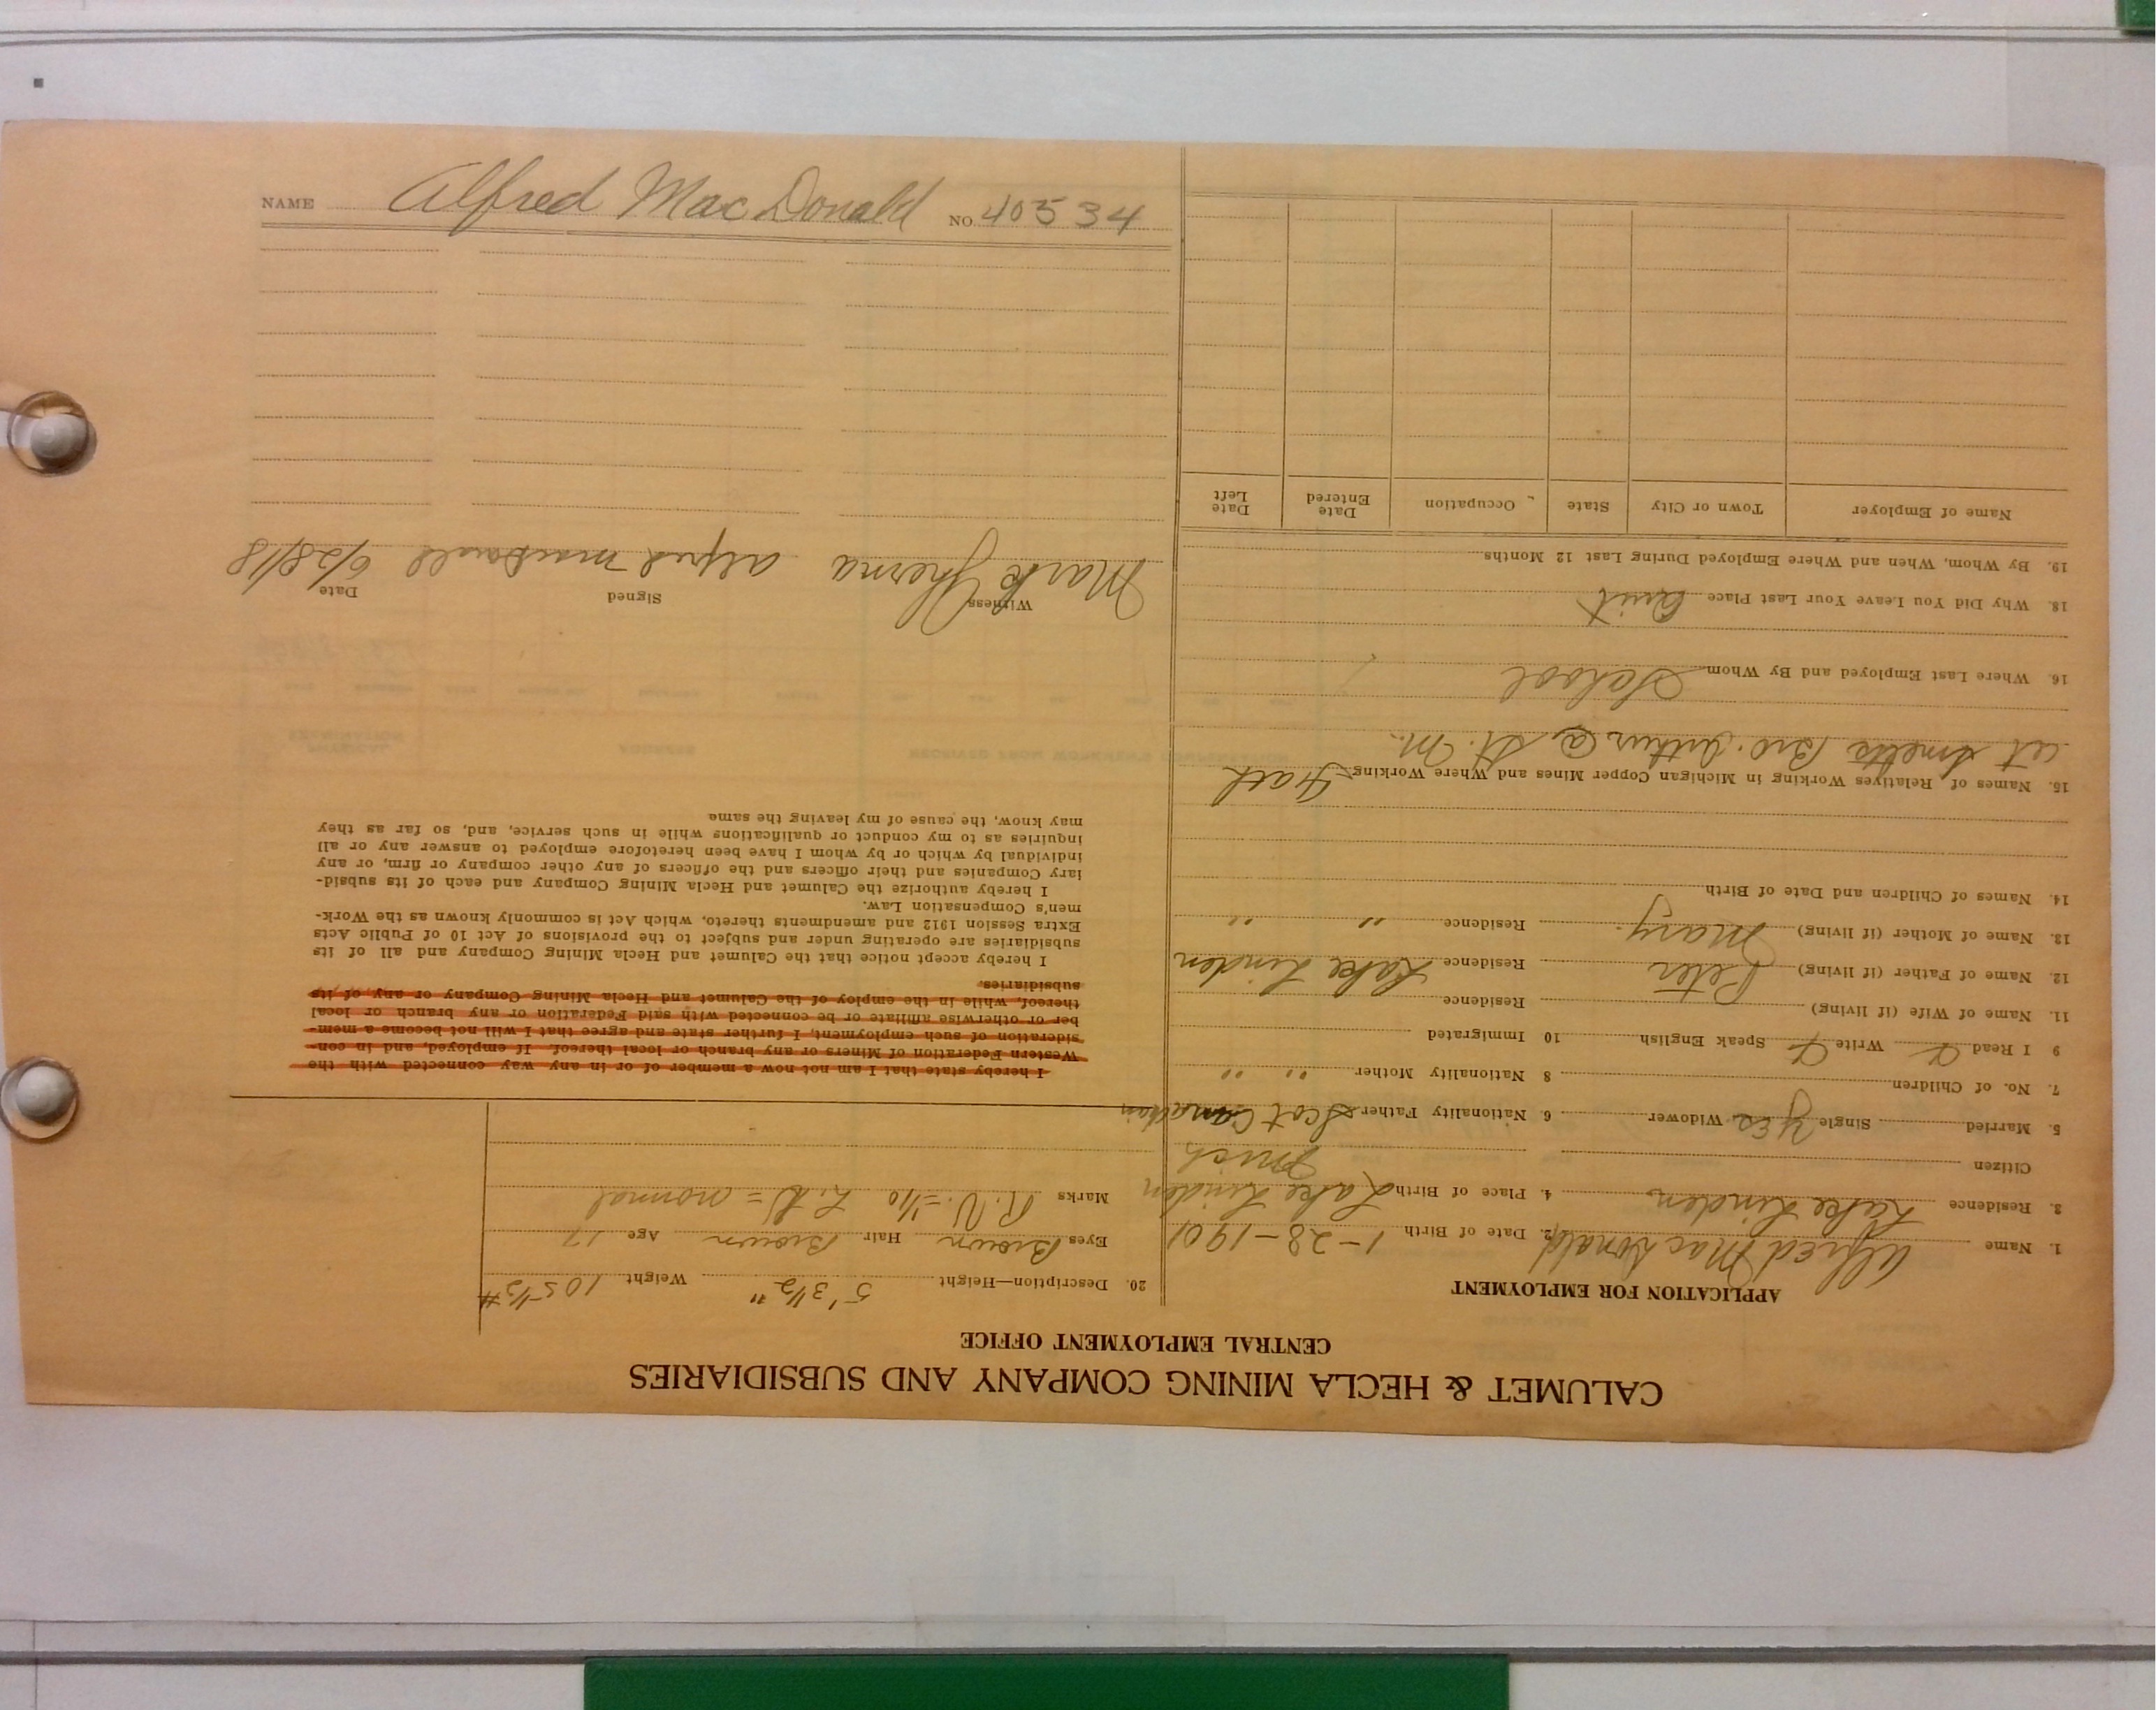 CALUMET & HECLA MINING COMPANY AND SUBSIDIARIES
CENTRAL EMPLOYMENT OFFICE
APPLICATION FOR EMPLOYMENT
1. Name Alfred MacDonald 2. Date of Birth 1-28-1901
3. Residence Lake Linden 4. Place of Birth Lake Linden
Citizen Mich
5. Married Single Yes Widower 6. Nationality Father Scot Canadian
7. No. of Children 8 Nationality Mother " "
9 I Read Write Speak English 10 Immigrated
11. Name of Wife (if living) Residence
12. Name of Father (if living) Peter Residence Lake Linden
13. Name of Mother (if living) Mary Residence " "
14. Names of Children and Date of Birth
15. Names of Relatives Working in Michigan Copper Mines and Where Working Fath
at Smelto Bro. Arthur @ St. M.
16. Where Last Employed and By Whom School
18. Why Did You Leave Your Last Place Quit
19. By Whom, When and Where Employed During Last 12 Months
Name of Employer Town or City State Occupation Date Entered Date Left
20. Description—Height 5' 3 1/2" Weight 105 1/2 #
Eyes Brown Hair Brown Age 17
Marks R.V. = 1/10 L.V. = normal
I hereby state that I am not now a member of or in any way connected with the
Western Federation of Miners or any branch or local thereof. If employed, and in con-
sideration of such employment, I further state and agree that I will not become a mem-
ber or otherwise affiliate or be connected with said Federation or any branch or local
thereof, while in the employ of the Calumet and Hecla Mining Company or any of its
subsidiaries.
I hereby accept notice that the Calumet and Hecla Mining Company and all of its
subsidiaries are operating under and subject to the provisions of Act 10 of Public Acts
Extra Session 1912 and amendments thereto, which Act is commonly known as the Work-
men's Compensation Law.
I hereby authorize the Calumet and Hecla Mining Company and each of its subsid-
iary Companies and their officers and the officers of any other company or firm, or any
individual by which or by whom I have been heretofore employed to answer any or all
inquiries as to my conduct or qualifications while in such service, and, so far as they
may know, the cause of my leaving the same
Witness Signed Date
Mark alfred macdonald 6/28/18
NAME Alfred MacDonald NO. 40534